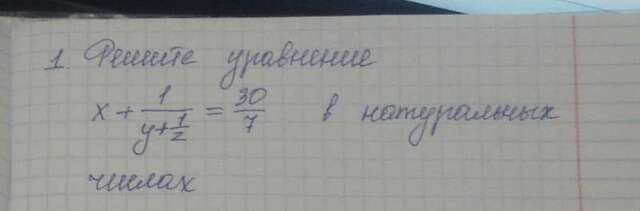 1. Решите уравнение
x + 1/(y + 1/z) = 30/7 в натуральных
числах